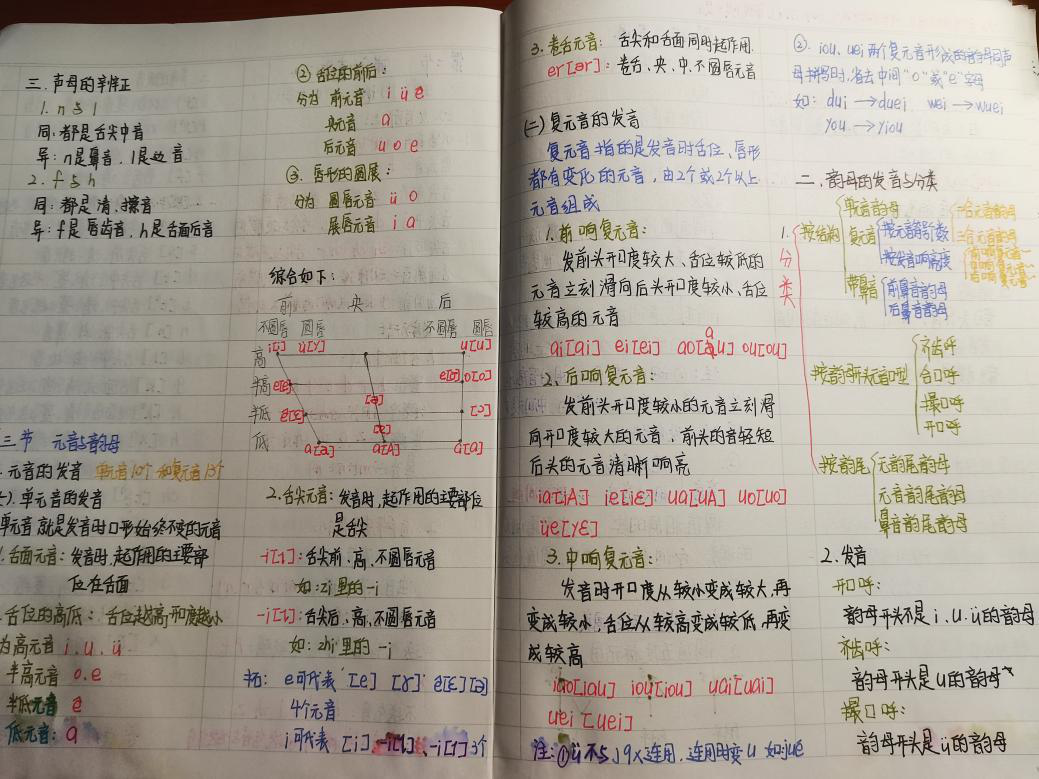 三. 声母的辛辛正
1. n与l
同: 都是舌尖中音
异: n是鼻音. l是边音
2. f与h
同: 都是清、擦音
异: f是唇齿音, h是舌面后音
三节 元音与韵母
元音的发音 单元音10个和复元音13个
单元音的发音
单元音就是发音时口形始终不变的元音
1. 舌面元音: 发音时, 起作用的主要部
位在舌面
舌位的高低: 舌位越高, 开口度越小
为高元音 i. u. ü
半高元音 o. e
半低元音 ê
低元音: a
② 舌位的前后:
分为 前元音 i ü ê
央元音 a
后元音 u o e
③. 唇形的圆展:
分为 圆唇元音 ü o
展唇元音 i a
综合如下:
前 央 后
不圆唇 圆唇 不圆唇 圆唇
高 i[i] ü[y] u[u]
半高 e[e] [ə] e[ɤ] o[o]
半低 ê[ɛ] [ɐ] [ɔ]
低 a[a] a[A] a[ɑ]
2. 舌尖元音: 发音时, 起作用的主要部位
是舌尖
-i[ɿ]: 舌尖前、高、不圆唇元音
如: zi里的-i
-i[ʅ]: 舌尖后、高、不圆唇元音
如: zhi里的-i
e可代表 [e] [ɤ] ê[ɛ] [ə]
4个元音
i可代表 [i] -i[ɿ]、-i[ʅ] 3个
3. 卷舌元音: 舌尖和舌面同时起作用.
er[ər]: 卷舌、央、中、不圆唇元音
(二) 复元音的发音
复元音指的是发音时舌位、唇形
都有变化的元音, 由2个或2个以上
元音组成
1. 前响复元音:
发前头开口度较大、舌位较低的
元音立刻滑向后头开口度较小、舌位
较高的元音
ai[ai] ei[ei] ao[ɑu] ou[ou]
2、后响复元音:
发前头开口度较小的元音立刻滑
向开口度较大的元音, 前头的音轻短
后头的元音清晰响亮
ia[iA] ie[iɛ] ua[uA] uo[uo]
üe[yɛ]
3. 中响复元音:
发音时开口度从较小变成较大, 再
变成较小, 舌位从较高变成较低, 再变
成较高
iao[iau] iou[iou] uai[uai]
uei [uei]
注: ①ü 不与 j q x 连用, 连用时变u 如: jue
②. iou, uei 两个复元音形成的韵母同声
母拼写时, 省去中间"o"或"e"字母
如: dui →duei. wei →wuei
you →yiou
二. 韵母的发音与分类
1. 分类
按结构
单元音韵母
复元音
按元音的个数
二合元音韵母
三合元音韵母
按发音响亮度
带鼻音
前鼻音韵母
后鼻音韵母
按韵母开头元音口型
齐齿呼
合口呼
撮口呼
开口呼
按韵尾
无韵尾韵母
元音韵尾韵母
鼻音韵尾韵母
2. 发音
开口呼:
韵母开头不是 i. u. ü的韵母
齐齿呼:
韵母开头是u的韵母
撮口呼:
韵母开头是ü的韵母